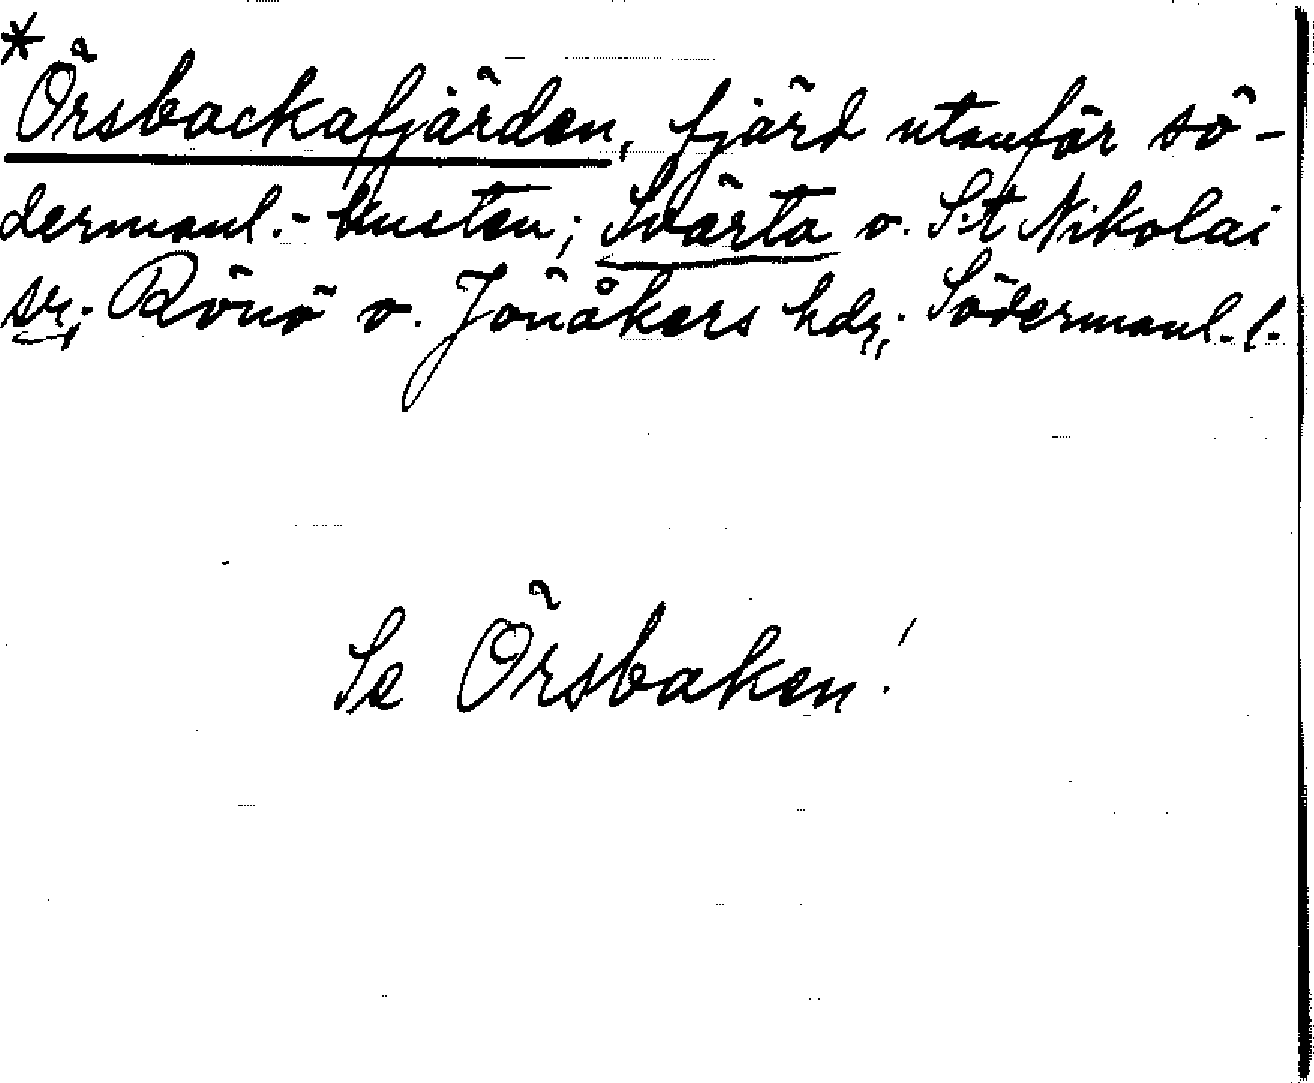 *
Örsbackafjärden, fjärd utanför sö-
dermanl.-kusten; Svärta o. S:t Nikolai
sr; Rönö o. Jönåkers hdr; Södermanl. l.
Se Örsbaken!